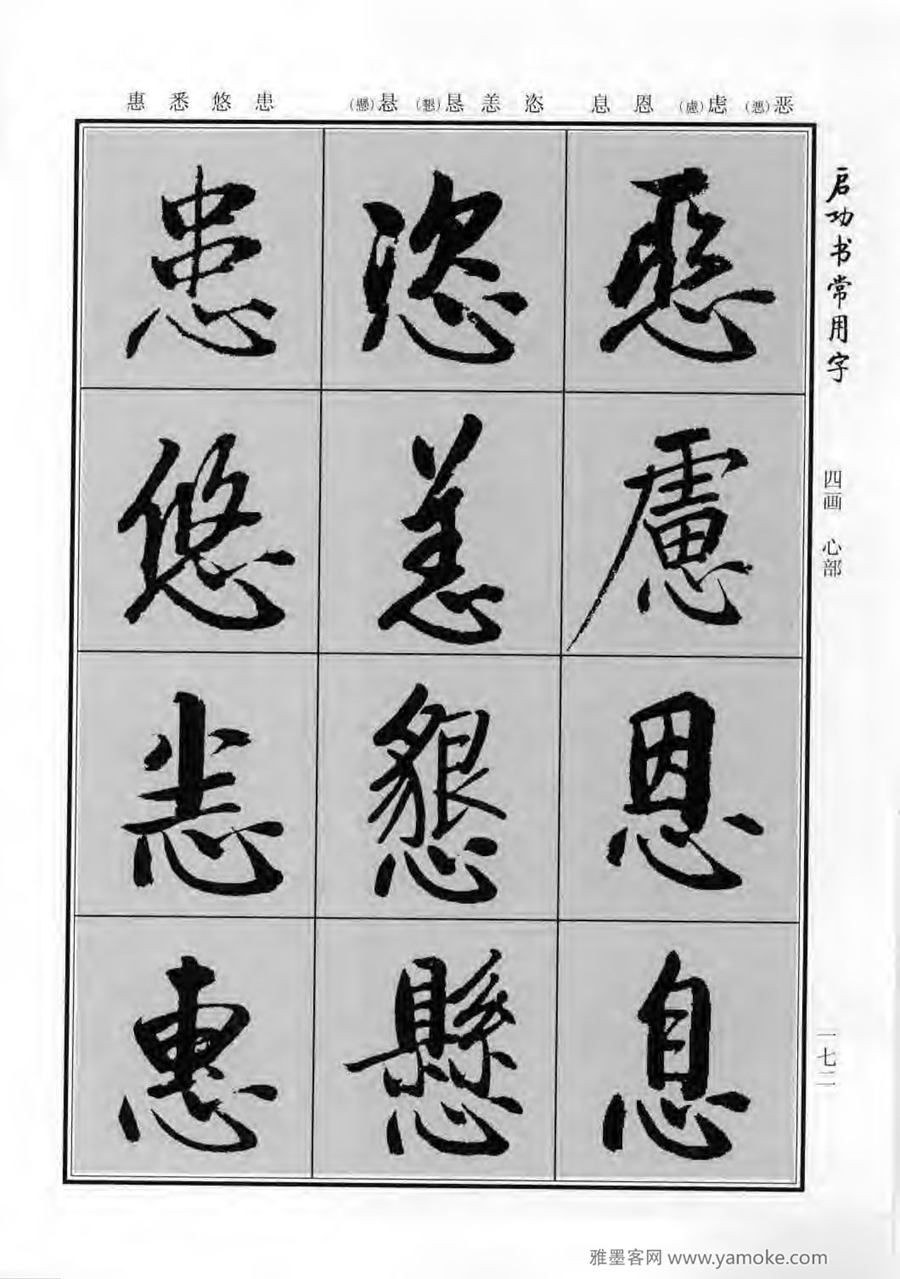 启功书常用字
四画 心部
一七二
恶(惡)虑(慮)恩息 恣恙恳(懇)悬(懸) 患悠悉惠
惡慮恩息
恣恙懇懸
患悠悉惠
雅墨客网 www.yamoke.com